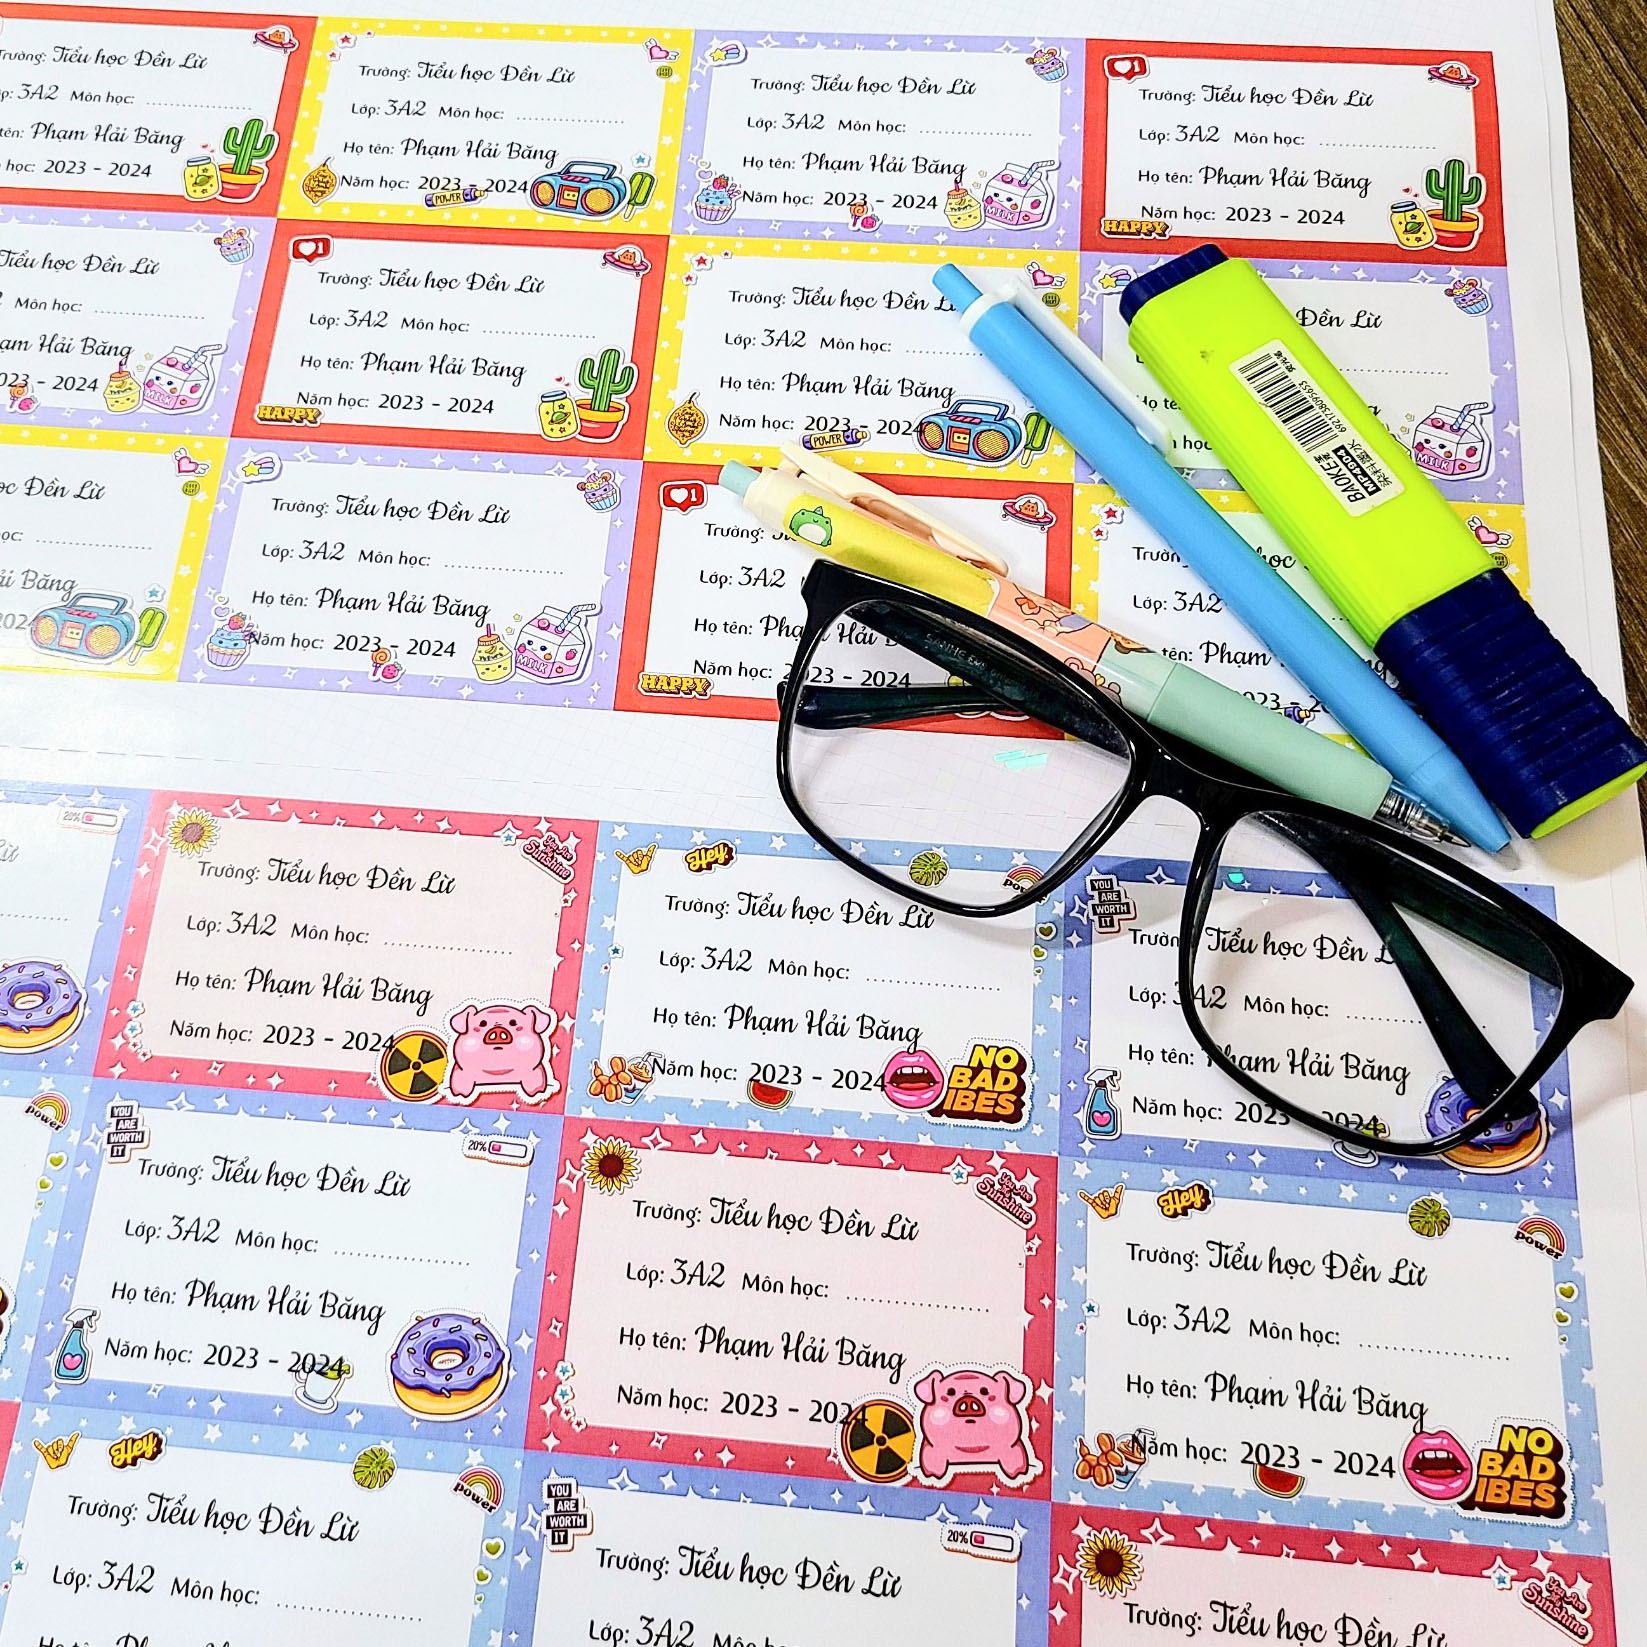 Trường: Tiểu học Đền Lừ
Môn học: ..................
Phạm Hải Băng
học: 2023 - 2024
Trường: Tiểu học Đền Lừ
Lớp: 3A2 Môn học: ..................
Họ tên: Phạm Hải Băng
Năm học: 2023 - 2024
POWER
Trường: Tiểu học Đền Lừ
Lớp: 3A2 Môn học: ..................
Họ tên: Phạm Hải Băng
Năm học: 2023 - 2024
MILK
1
Trường: Tiểu học Đền Lừ
Lớp: 3A2 Môn học: ..................
Họ tên: Phạm Hải Băng
Năm học: 2023 - 2024
HAPPY
Tiểu học Đền Lừ
Môn học: ..................
Hải Băng
- 2024
MILK
1
Trường: Tiểu học Đền Lừ
Lớp: 3A2 Môn học: ..................
Họ tên: Phạm Hải Băng
Năm học: 2023 - 2024
HAPPY
Trường: Tiểu học Đền
Lớp: 3A2 Môn học: ..................
Họ tên: Phạm Hải Băng
Năm học: 2023 - 2024
POWER
Đền Lừ
học
MILK
BAOKE
MP4904
6921738095653
học Đền Lừ
Băng
Trường: Tiểu học Đền Lừ
Lớp: 3A2 Môn học: ..................
Họ tên: Phạm Hải Băng
Năm học: 2023 - 2024
MILK
1
Trường:
Lớp: 3A2
Họ tên: Hải
Năm học: 2023 - 2024
HAPPY
học
Lớp: 3A2
tên: Phạm
20%
You Are My Sunshine
Trường: Tiểu học Đền Lừ
Lớp: 3A2 Môn học: ..................
Họ tên: Phạm Hải Băng
Năm học: 2023 - 2024
Hey.
Trường: Tiểu học Đền Lừ
Lớp: 3A2 Môn học: ..................
Họ tên: Phạm Hải Băng
Năm học: 2023 - 2024
NO BAD IBES
YOU ARE WORTH IT
Tiểu học Đền
Lớp: 3A2 Môn học: ..................
Họ tên: Phạm Hải Băng
Năm học: 2023 - 2024
power
YOU ARE WORTH IT
20%
Trường: Tiểu học Đền Lừ
Lớp: 3A2 Môn học: ..................
Họ tên: Phạm Hải Băng
Năm học: 2023 - 2024
You Are My Sunshine
Trường: Tiểu học Đền Lừ
Lớp: 3A2 Môn học: ..................
Họ tên: Phạm Hải Băng
Năm học: 2023 - 2024
Hey.
power
Trường: Tiểu học Đền Lừ
Lớp: 3A2 Môn học: ..................
Họ tên: Phạm Hải Băng
Năm học: 2023 - 2024
NO BAD IBES
Hey.
power
Trường: Tiểu học Đền Lừ
Lớp: 3A2 Môn học: ..................
YOU ARE WORTH IT
20%
Trường: Tiểu học Đền Lừ
Lớp: 3A2
You Are My Sunshine
Trường: Tiểu học Đền Lừ